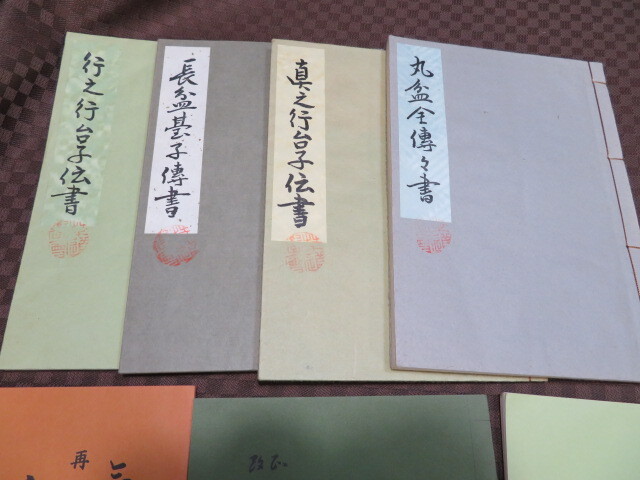 丸盆全傳々書
真之行台子伝書
長盆䑓子傳書
行之行台子伝書
再
改正